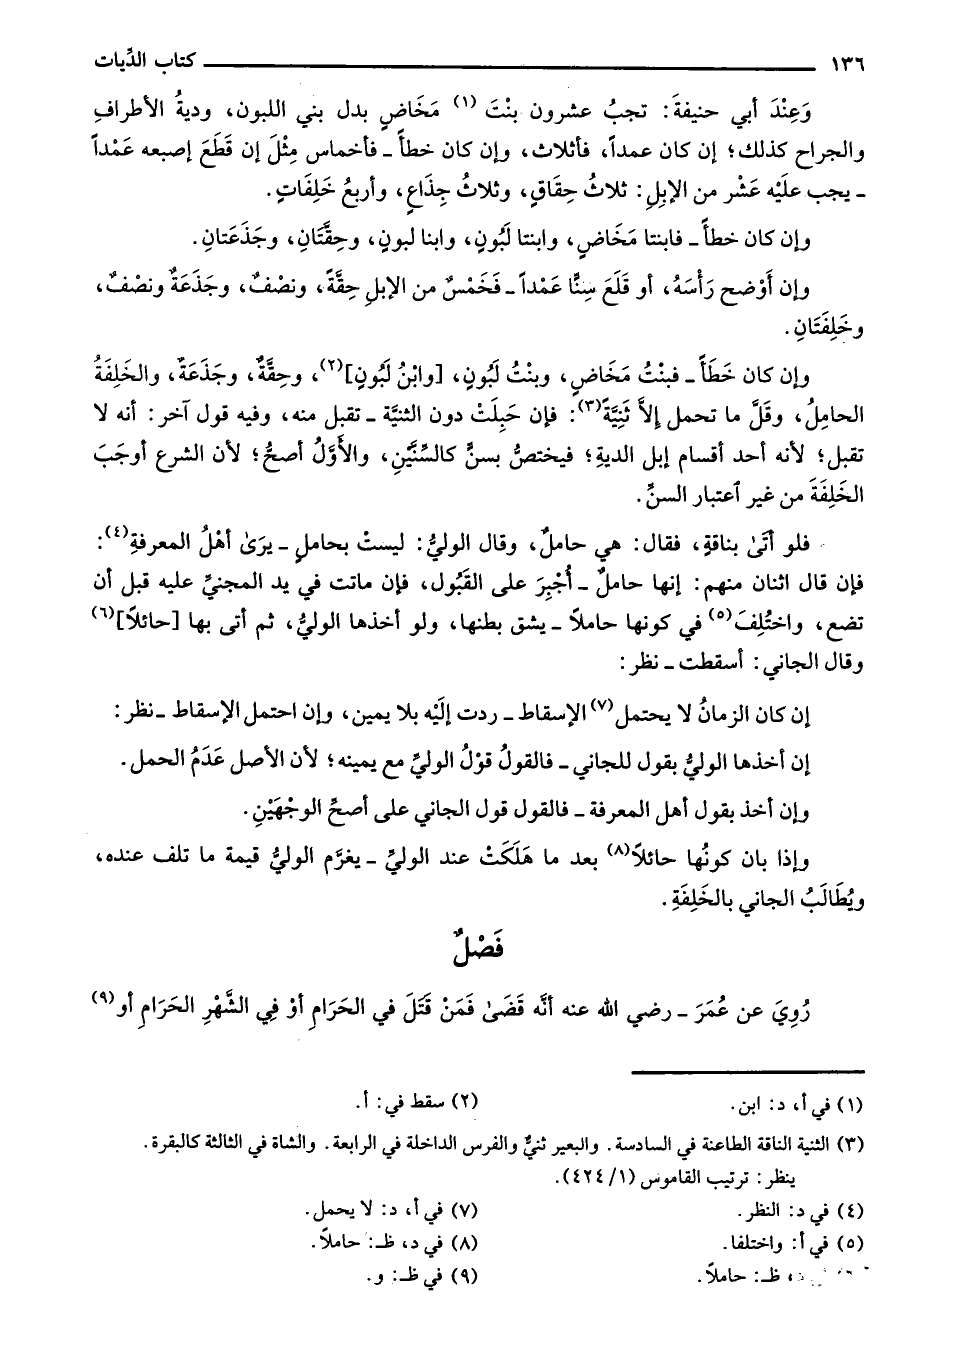 ١٣٦ ـــــــــ كتاب الدِّيات
وَعِنْدَ أبي حنيفةَ: تجبُ عشرون بنْتَ (١) مَخَاضٍ بدل بني اللبون، وديةُ الأطرافِ
والجراح كذلك؛ إن كان عمداً، فأثلاث، وإن كان خطأً ـ فأخماس مِثْلَ إن قَطَعَ إصبعه عَمْداً
ـ يجب علَيْه عَشْر من الإبلِ: ثلاثُ حِقَاقٍ، وثلاثُ جِذَاعٍ، وأربعُ خَلِفَاتٍ.
وإن كان خطأً ـ فابنتا مَخَاضٍ، وابنتا لَبُونٍ، وابنا لبونٍ، وحِقَّتَانِ، وجَذَعَتانِ.
وإن أَوْضح رَأْسَهُ، أو قَلَعَ سِنًّا عَمْداً ـ فَخَمْسٌ من الإبلِ حِقَّةً، ونصْفٌ، وجَذَعَةٌ ونصْفٌ،
وخَلِفَتَانِ.
وإن كان خَطَأً ـ فبنْتُ مَخَاضٍ، وبنْتُ لَبُونٍ، [وابْنُ لَبُونٍ](٢)، وحِقَّةٌ، وجَذَعَةٌ، والخَلِفَةُ
الحامِلُ، وقَلَّ ما تحمل إلاَّ ثَنِيَّةً(٣): فإن حَبِلَتْ دون الثنيَّة ـ تقبل منه، وفيه قول آخر: أنه لا
تقبل؛ لأنه أحد أقسام إبل الديةِ؛ فيختصُّ بسنٍّ كالسِّنَّيْنِ، والأَوَّلُ أصحُّ؛ لأن الشرع أوجَبَ
الخَلِفَةَ من غير اعتبار السنِّ.
فلو أَتَىٰ بناقةٍ، فقال: هي حاملٌ، وقال الوليُّ: ليستْ بحاملٍ ـ يرَىٰ أهْلُ المعرفةِ(٤):
فإن قال اثنان منهم: إنها حاملٌ ـ أُجْبِرَ على القَبُول، فإن ماتت في يد المجنيِّ عليه قبل أن
تضع، واختُلِفَ(٥) في كونها حاملاً ـ يشق بطنها، ولو أخذها الوليُّ، ثم أتى بها [حائلاً](٦)
وقال الجاني: أسقطت ـ نظر:
إن كان الزمانُ لا يحتمل(٧) الإسقاط ـ ردت إلَيْه بلا يمين، وإن احتمل الإسقاط ـ نظر:
إن أخذها الوليُّ بقول للجاني ـ فالقولُ قوْلُ الوليِّ مع يمينه؛ لأن الأصل عَدَمُ الحمل.
وإن أخذ بقول أهل المعرفة ـ فالقول قول الجاني على أصحِّ الوجْهَيْنِ.
وإذا بان كونُها حائلاً(٨) بعد ما هَلَكَتْ عند الوليِّ ـ يغرَّم الوليُّ قيمة ما تلف عنده،
ويُطَالَبُ الجاني بالخَلِفَةِ.
فَصْلٌ
رُوِيَ عن عُمَرَ ـ رضي الله عنه أنَّه قَضَىٰ فَمَنْ قَتَلَ في الحَرَامِ أوْ فِي الشَّهْرِ الحَرَامِ أو(٩)
(١) في أ، د: ابن.
(٢) سقط في: أ.
(٣) الثنية الناقة الطاعنة في السادسة. والبعير ثنيٌّ والفرس الداخلة في الرابعة. والشاة في الثالثة كالبقرة.
ينظر: ترتيب القاموس (١/ ٤٢٤).
(٤) في د: النظر.
(٧) في أ، د: لا يحمل.
(٥) في أ: واختلفا.
(٨) في د، ظـ: حاملاً.
د، ظـ: حاملاً.
(٩) في ظـ: و.